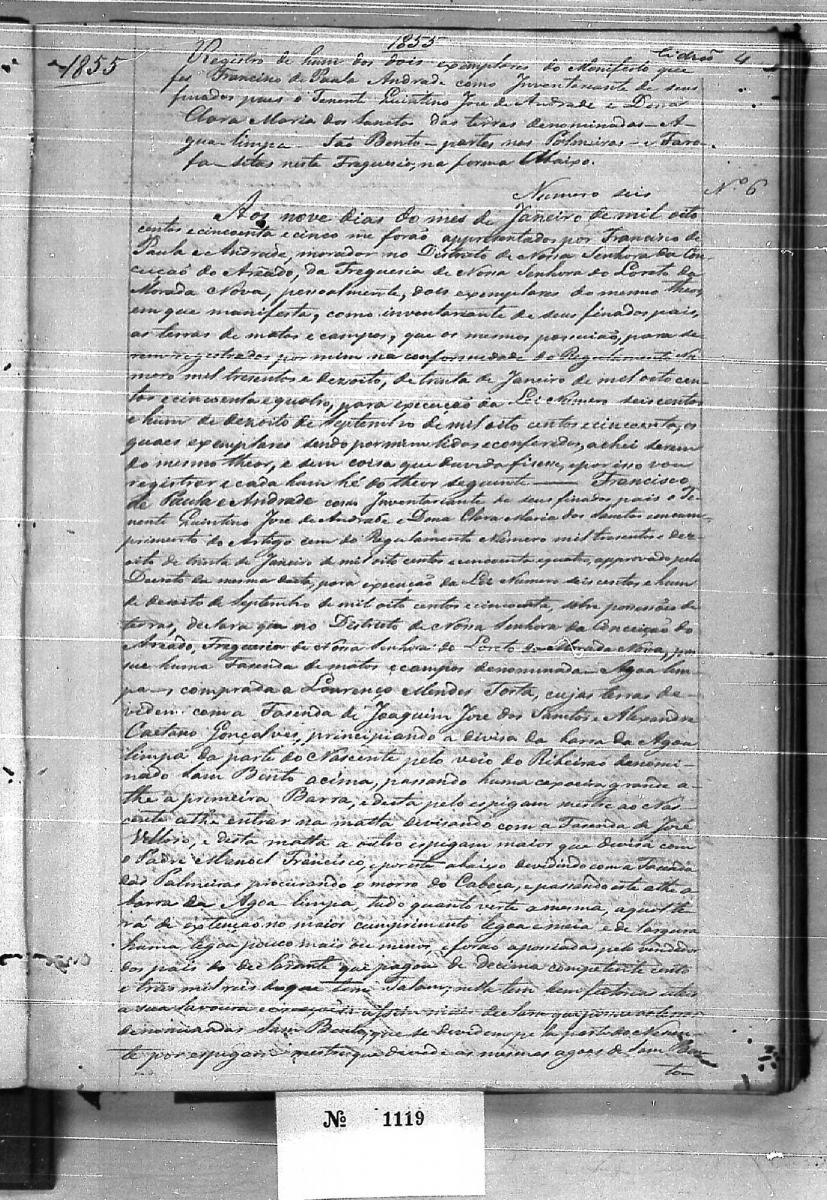 1855
1855
Cidrão 4
Registro de hum dos dois exemplares do Manifesto que
fes Francisco de Paula Andrade como Inventeriante de seus
finados pais o Tenente Quintino Jose de Andrade e Dona
Clara Maria dos Sanctos das terras denominadas - A-
goa limpa - São Bento - partes nas Palmeiras - e Tara-
fa sitas neste Freguesia, na forma Abaixo.
Numero seis
Nº 6
Aos nove dias do mes de Janeiro de mil oito
centos e cincoenta e cinco me forão appresentados por Francisco de
Paula e Andrade, morador no Districto de Nossa Senhora da Con-
ceição do Areado, da Freguesia de Nossa Senhora do Loreto da
Morada Nova, pessoalmente, dois exemplares do mesmo theor,
em que manifesta, como inventariante de seus finados pais,
as terras de matos e campos, que os mesmos possuião, para se-
rem registrados por mim na conformidade do Regulamento Nu-
mero mil tresentos e dezoito, de trinta de Janeiro de mil oito cen-
tos e cincoenta e quatro, para execução da Lei Numero seis centos
e hum de dezoito de Septembro de mil oito centos e cincoenta, os
quaes exemplares sendo por mim lidos e conferidos, achei serem
do mesmo theor, e sem coisa que duvida fisesse, e por isso vou
registrar e cada hum hé do theor seguinte — Francisco
de Paula e Andrade como Inventariante de seus finados pais o Te-
nente Quintino Jose de Andrade e Dona Clara Maria dos Santos em cum-
primento do Artigo cem do Regulamento Numero mil tresentos e dez-
oito de trinta de Janeiro de mil oito centos e cincoenta e quatro, approvado pelo
Decreto da mesma data, para execução da Lei Numero seis centos e hum
de dezoito de Septembro de mil oito centos e cincoenta, sobre possessões de
terras, declara que no Districto de Nossa Senhora da Conceição do
Areado, Freguesia de Nossa Senhora do Loreto da Morada Nova, pos-
sue huma Fazenda de matos e campos denominada - Agoa lim-
pa -, comprada a Lourenço Mendes Tosta, cujas terras de-
videm com a Fasenda de Joaquim Jose dos Santos e Alexandre
Caetano Gonçalves, principiando a divisa da barra da Agoa
limpa da parte do Nascente pelo veio do Ribeirão denomi-
nado Sam Bento acima, passando huma capoeira grande a-
the a primeira Barra, e desta pelo espigam mestre ao Nas-
cente athé entrar na matta devisando com a Fasenda de José
Velloso, e desta matta a outro espigam maior que devisa com
o Padre Manoel Francisco, e por este abaixo devidindo com a Fasenda
das Palmeiras procurando o morro do Cabeça, e passando este athe a
barra da Agoa limpa, tudo quanto verte a mesma, a qual te-
rá de extenção no maior cumprimento legoa e meia, e de largura
huma legoa pouco mais ou menos, e forão apossiadas pelo vendedor
dos pais do declarante que pagou de decima competente cento
e tres mil reis do que tem Talam, nella tem bemfeitorias uteis
a sua lavoura e declara que possue as terras
denominadas Sam Bento, que se devidem pela parte do Nascen-
te por espigam mestre que devide as mesmas agoas de Sam Ben-
to
Nº 1119